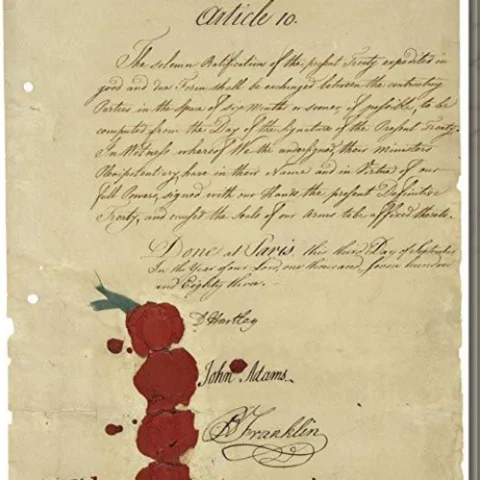 Article 10.
The solemn Ratifications of the present Treaty expedited in
good and due Form shall be exchanged between the contracting
Parties in the Space of six Months or sooner if possible, to be
computed from the Day of the Signature of the Present Treaty.
In Witness whereof We the undersigned, their Ministers
Plenipotentiary, have in their Name and in Virtue of our
Full Powers, signed with our Hands the present Definitive
Treaty, and caused the Seals of our Arms to be affixed thereto.
Done at Paris, this third Day of September
In the Year of our Lord, one thousand, seven hundred
and Eighty three.
D Hartley
John Adams.
B Franklin